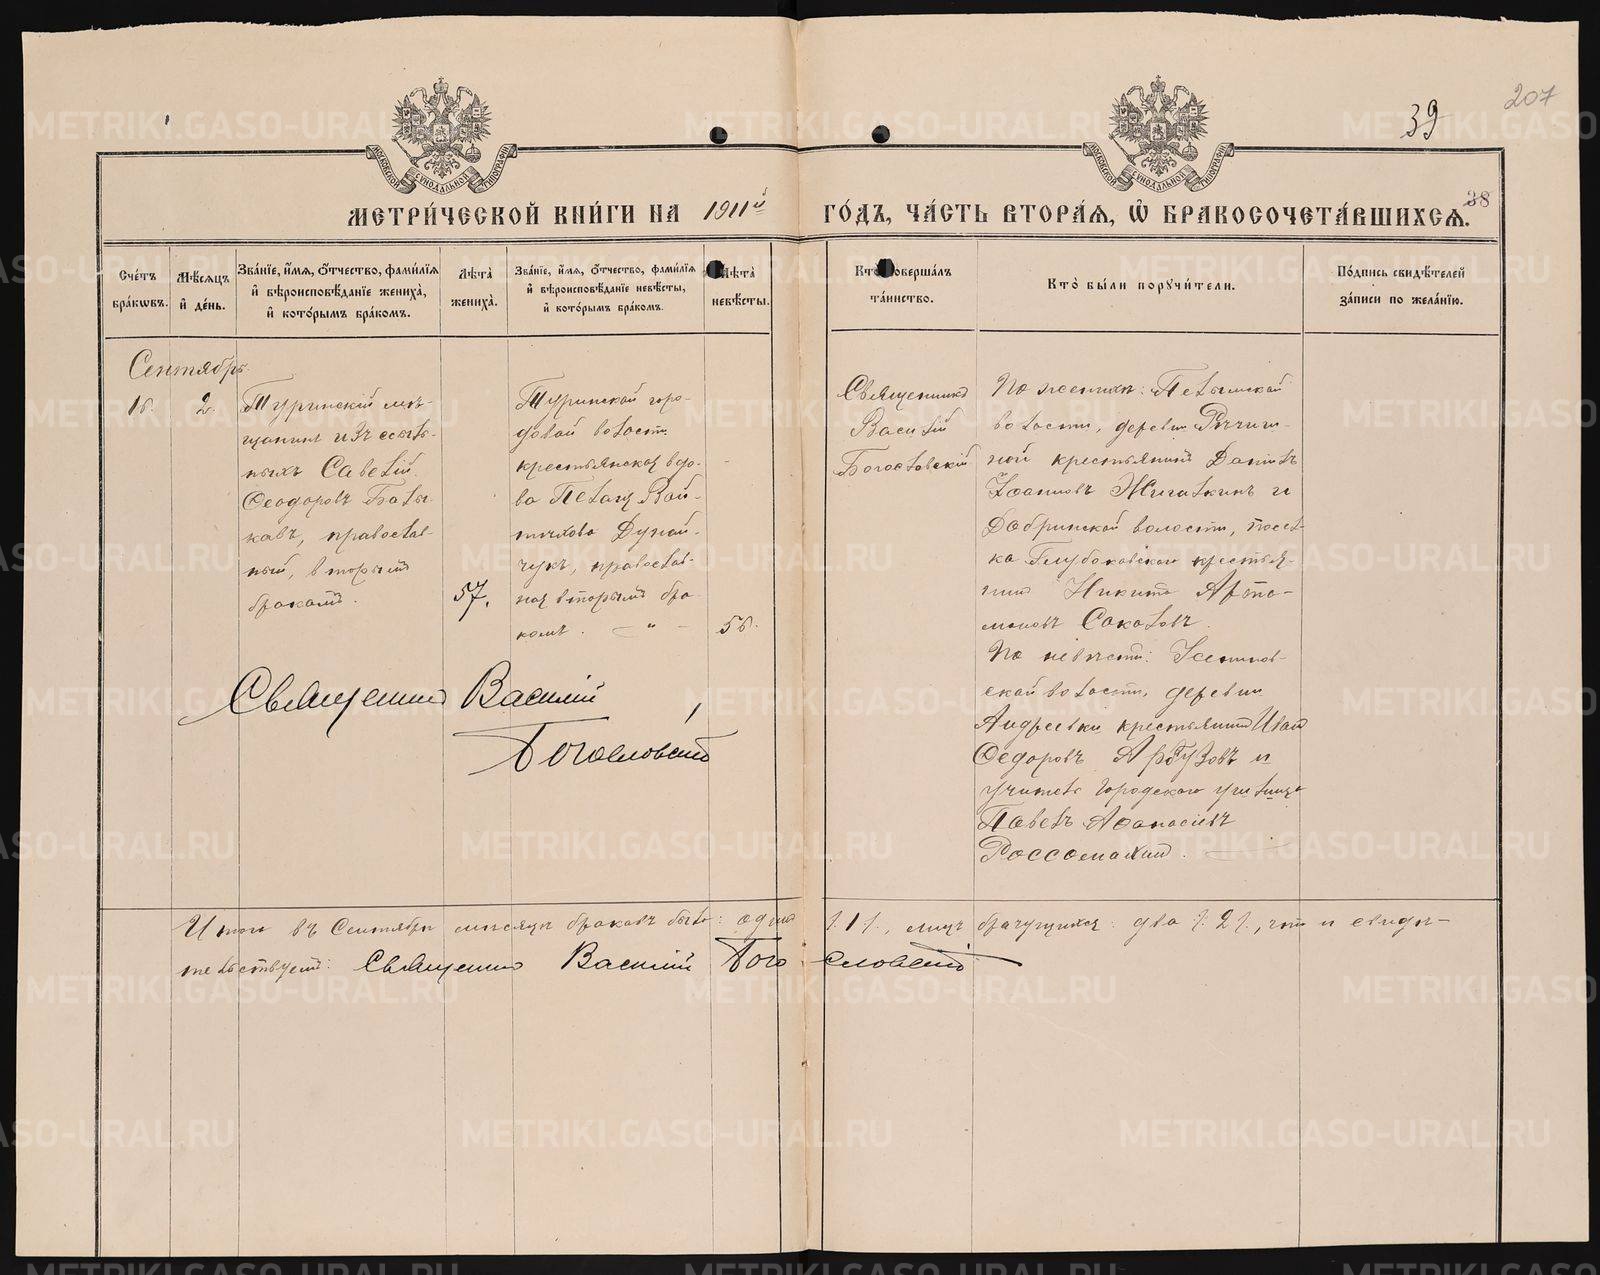 207
39
38
МОСКОВСКОЙ СѴНОДАЛЬНОЙ ТИПОГРАФІИ
МОСКОВСКОЙ СѴНОДАЛЬНОЙ ТИПОГРАФІИ
МЕТРИ́ЧЕСКОЙ КНИ́ГИ НА 1911й ГО́ДЪ, ЧА́СТЬ ВТОРА́Я, Ѡ҆ БРАКОСОЧЕТА́ВШИХСЯ.
Сче́тъ бра́кѡвъ.
Мѣ́сяцъ и҆ де́нь.
Зва́нїе, и҆́мя, ѻ҆́тчество, фами́лїя и҆ вѣроисповѣ́данїе жениха̀, и҆ кото́рымъ бра́комъ.
Лѣ́та̀ жениха̀.
Зва́нїе, и҆́мя, ѻ҆́тчество, фами́лїя и҆ вѣроисповѣ́данїе невѣ́сты, и҆ кото́рымъ бра́комъ.
Лѣ́та̀ невѣ́сты.
Кто̀ соверша́лъ та́инство.
Кто̀ бы́ли порꙋчи́тели.
По́дпись свидѣ́телей за́писи по жела́нїю.
Сентябрь
16. 2.
Туринскій мѣ-
щанинъ изъ ссыль-
ныхъ Савелій
Ѳеодоровъ Балы
ковъ, православ-
ный, вторымъ
бракомъ.
57.
Туринской горо-
довой волости
крестьянская вдо-
ва Пелагія Вой-
тихова Дунай-
чукъ, православ-
ная вторымъ бра
комъ. — " —
56.
Священникъ
Василій
Богословскій
По женихѣ: Пелымской
волости, деревни
ной крестьянинъ Даніилъ
Іоанновъ Жигалкинъ и
Добринской волости, посел-
ка Глубоковскаго крестья-
нинъ Никита Арта-
моновъ Соколовъ.
По невѣстѣ:
ской волости, деревни
Андреевки крестьянинъ Иванъ
Ѳедоровъ Арбузовъ и
учитель городского училища
Павелъ Аѳанасіевъ
Россомахинъ.
Священникъ Василій
Богословскій
Итого въ Сентябрѣ мѣсяцѣ браковъ было: одинъ /.1/., лицъ брачущихся: два /.2/., что и свидѣ-
тельствуетъ: Священникъ Василій Богословскій
METRIKI.GASO-URAL.RU